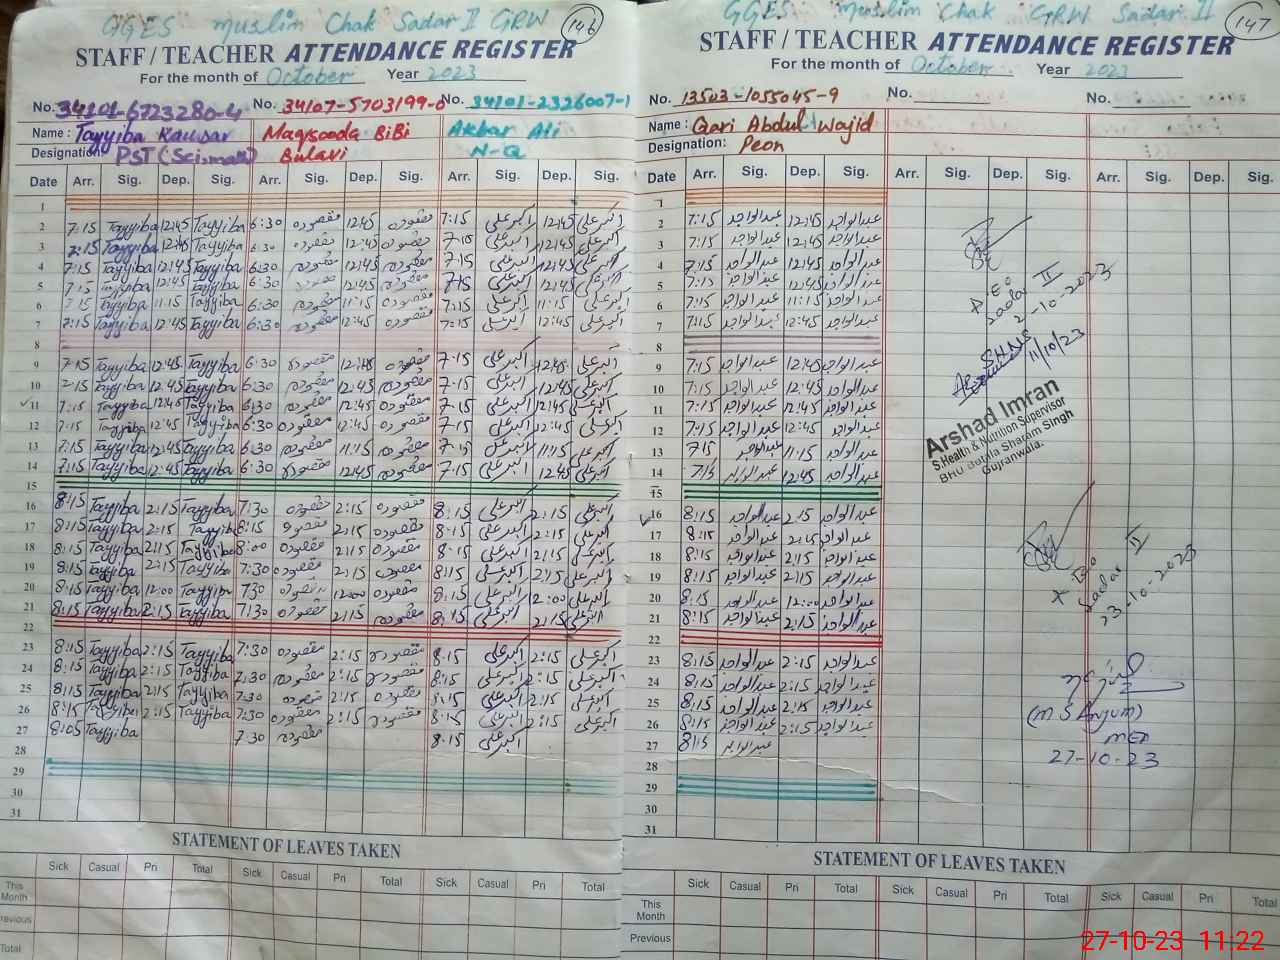 GGES muslim Chak Sadar II GRW 146
STAFF / TEACHER ATTENDANCE REGISTER
For the month of October Year 2023
No. 34101-6723280-4 No. 34107-5703199-0 No. 34101-2326007-1
Name : Tayyiba Kausar Maqsooda BiBi Akbar Ali
Designation: PST (Sci.math) Bulavi N-Q
Date Arr. Sig. Dep. Sig. Arr. Sig. Dep. Sig. Arr. Sig. Dep. Sig.
1
2 7:15 Tayyiba 12:45 Tayyiba 6:30 مقصودہ 12:45 مقصودہ 7:15 اکبر علی 12:45 اکبر علی
3 7:15 Tayyiba 12:45 Tayyiba 6:30 مقصودہ 12:45 مقصودہ 7:15 اکبر علی 12:45 اکبر علی
4 7:15 Tayyiba 12:45 Tayyiba 6:30 مقصودہ 12:45 مقصودہ 7:15 اکبر علی 12:45 اکبر علی
5 7:15 Tayyiba 12:45 Tayyiba 6:30 مقصودہ 12:45 مقصودہ 7:15 اکبر علی 12:45 اکبر علی
6 7:15 Tayyiba 11:15 Tayyiba 6:30 مقصودہ 11:15 مقصودہ 7:15 اکبر علی 11:15 اکبر علی
7 7:15 Tayyiba 12:45 Tayyiba 6:30 مقصودہ 12:45 مقصودہ 7:15 اکبر علی 12:45 اکبر علی
8
9 7:15 Tayyiba 12:45 Tayyiba 6:30 مقصودہ 12:45 مقصودہ 7:15 اکبر علی 12:45 اکبر علی
10 7:15 Tayyiba 12:45 Tayyiba 6:30 مقصودہ 12:45 مقصودہ 7:15 اکبر علی 12:45 اکبر علی
11 7:15 Tayyiba 12:45 Tayyiba 6:30 مقصودہ 12:45 مقصودہ 7:15 اکبر علی 12:45 اکبر علی
12 7:15 Tayyiba 12:45 Tayyiba 6:30 مقصودہ 12:45 مقصودہ 7:15 اکبر علی 12:45 اکبر علی
13 7:15 Tayyiba 12:45 Tayyiba 6:30 مقصودہ 11:15 مقصودہ 7:15 اکبر علی 11:15 اکبر علی
14 7:15 Tayyiba 12:45 Tayyiba 6:30 مقصودہ 12:45 مقصودہ 7:15 اکبر علی 12:45 اکبر علی
15
16 8:15 Tayyiba 2:15 Tayyiba 7:30 مقصودہ 2:15 مقصودہ 8:15 اکبر علی 2:15 اکبر علی
17 8:15 Tayyiba 2:15 Tayyiba 8:15 مقصودہ 2:15 مقصودہ 8:15 اکبر علی 2:15 اکبر علی
18 8:15 Tayyiba 2:15 Tayyiba 8:00 مقصودہ 2:15 مقصودہ 8:15 اکبر علی 2:15 اکبر علی
19 8:15 Tayyiba 2:15 Tayyiba 7:30 مقصودہ 2:15 مقصودہ 8:15 اکبر علی 2:15 اکبر علی
20 8:15 Tayyiba 12:00 Tayyiba 7:30 مقصودہ 12:00 مقصودہ 8:15 اکبر علی 12:00 اکبر علی
21 8:15 Tayyiba 2:15 Tayyiba 7:30 مقصودہ 2:15 مقصودہ 8:15 اکبر علی 2:15 اکبر علی
22
23 8:15 Tayyiba 2:15 Tayyiba 7:30 مقصودہ 2:15 مقصودہ 8:15 اکبر علی 2:15 اکبر علی
24 8:15 Tayyiba 2:15 Tayyiba 7:30 مقصودہ 2:15 مقصودہ 8:15 اکبر علی 2:15 اکبر علی
25 8:15 Tayyiba 2:15 Tayyiba 7:30 مقصودہ 2:15 مقصودہ 8:15 اکبر علی 2:15 اکبر علی
26 8:15 Tayyiba 2:15 Tayyiba 7:30 مقصودہ 2:15 مقصودہ 8:15 اکبر علی 2:15 اکبر علی
27 8:05 Tayyiba 7:30 مقصودہ 8:15 اکبر علی
28
29
30
31
STATEMENT OF LEAVES TAKEN
Sick Casual Pri Total Sick Casual Pri Total Sick Casual Pri Total
This Month
Previous
Total
GGES muslim Chak GRW Sadar II 147
STAFF / TEACHER ATTENDANCE REGISTER
For the month of October Year 2023
No. 13503-1055045-9 No. No.
Name : Qari Abdul Wajid
Designation: Peon
Date Arr. Sig. Dep. Sig. Arr. Sig. Dep. Sig. Arr. Sig. Dep. Sig.
1
2 7:15 عبدالواجد 12:45 عبدالواجد
3 7:15 عبدالواجد 12:45 عبدالواجد
4 7:15 عبدالواجد 12:45 عبدالواجد
5 7:15 عبدالواجد 12:45 عبدالواجد
6 7:15 عبدالواجد 11:15 عبدالواجد
7 7:15 عبدالواجد 12:45 عبدالواجد
8
9 7:15 عبدالواجد 12:45 عبدالواجد
10 7:15 عبدالواجد 12:45 عبدالواجد
11 7:15 عبدالواجد 12:45 عبدالواجد
12 7:15 عبدالواجد 12:45 عبدالواجد
13 7:15 عبدالواجد 11:15 عبدالواجد
14 7:15 عبدالواجد 12:45 عبدالواجد
15
16 8:15 عبدالواجد 2:15 عبدالواجد
17 8:15 عبدالواجد 2:15 عبدالواجد
18 8:15 عبدالواجد 2:15 عبدالواجد
19 8:15 عبدالواجد 2:15 عبدالواجد
20 8:15 عبدالواجد 12:00 عبدالواجد
21 8:15 عبدالواجد 2:15 عبدالواجد
22
23 8:15 عبدالواجد 2:15 عبدالواجد
24 8:15 عبدالواجد 2:15 عبدالواجد
25 8:15 عبدالواجد 2:15 عبدالواجد
26 8:15 عبدالواجد 2:15 عبدالواجد
27 8:15 عبدالواجد
28
29
30
31
Sadar II
2-10-2023
SHNS
11/10/23
Arshad Imran
S.Health & Nutrition Supervisor
BHU Butala Sharam Singh
Gujranwala.
Sadar II
23-10-2023
(M.S Anjum)
MEA
27-10-23
STATEMENT OF LEAVES TAKEN
Sick Casual Pri Total Sick Casual Pri Total Sick Casual Pri Total
This Month
Previous
27-10-23 11:22